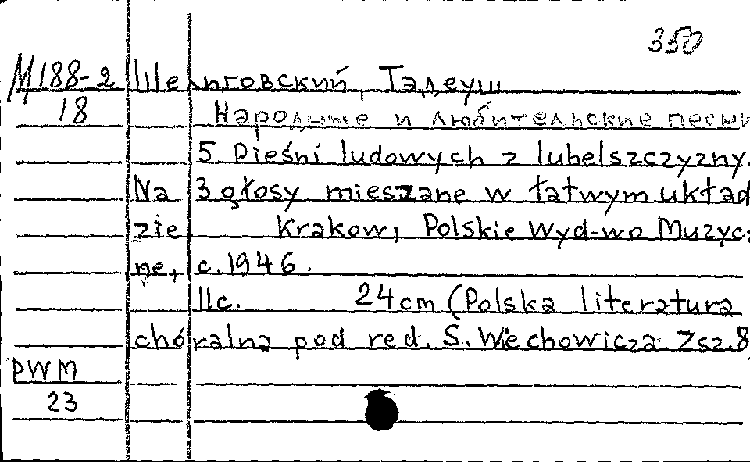 350
М188-2 Шелиговский, Тадеуш
18 Народные и любительские песни
5 Pieśni ludowych z lubelszczyzny.
Na 3 głosy mieszane w łatwym układ
zie Krakow, Polskie Wyd-wo Muzyc:
ne, c.1946.
11c. 24cm (Polska literatura
chóralna pod red. S. Wiechowicza Zsz.8
PWM
23